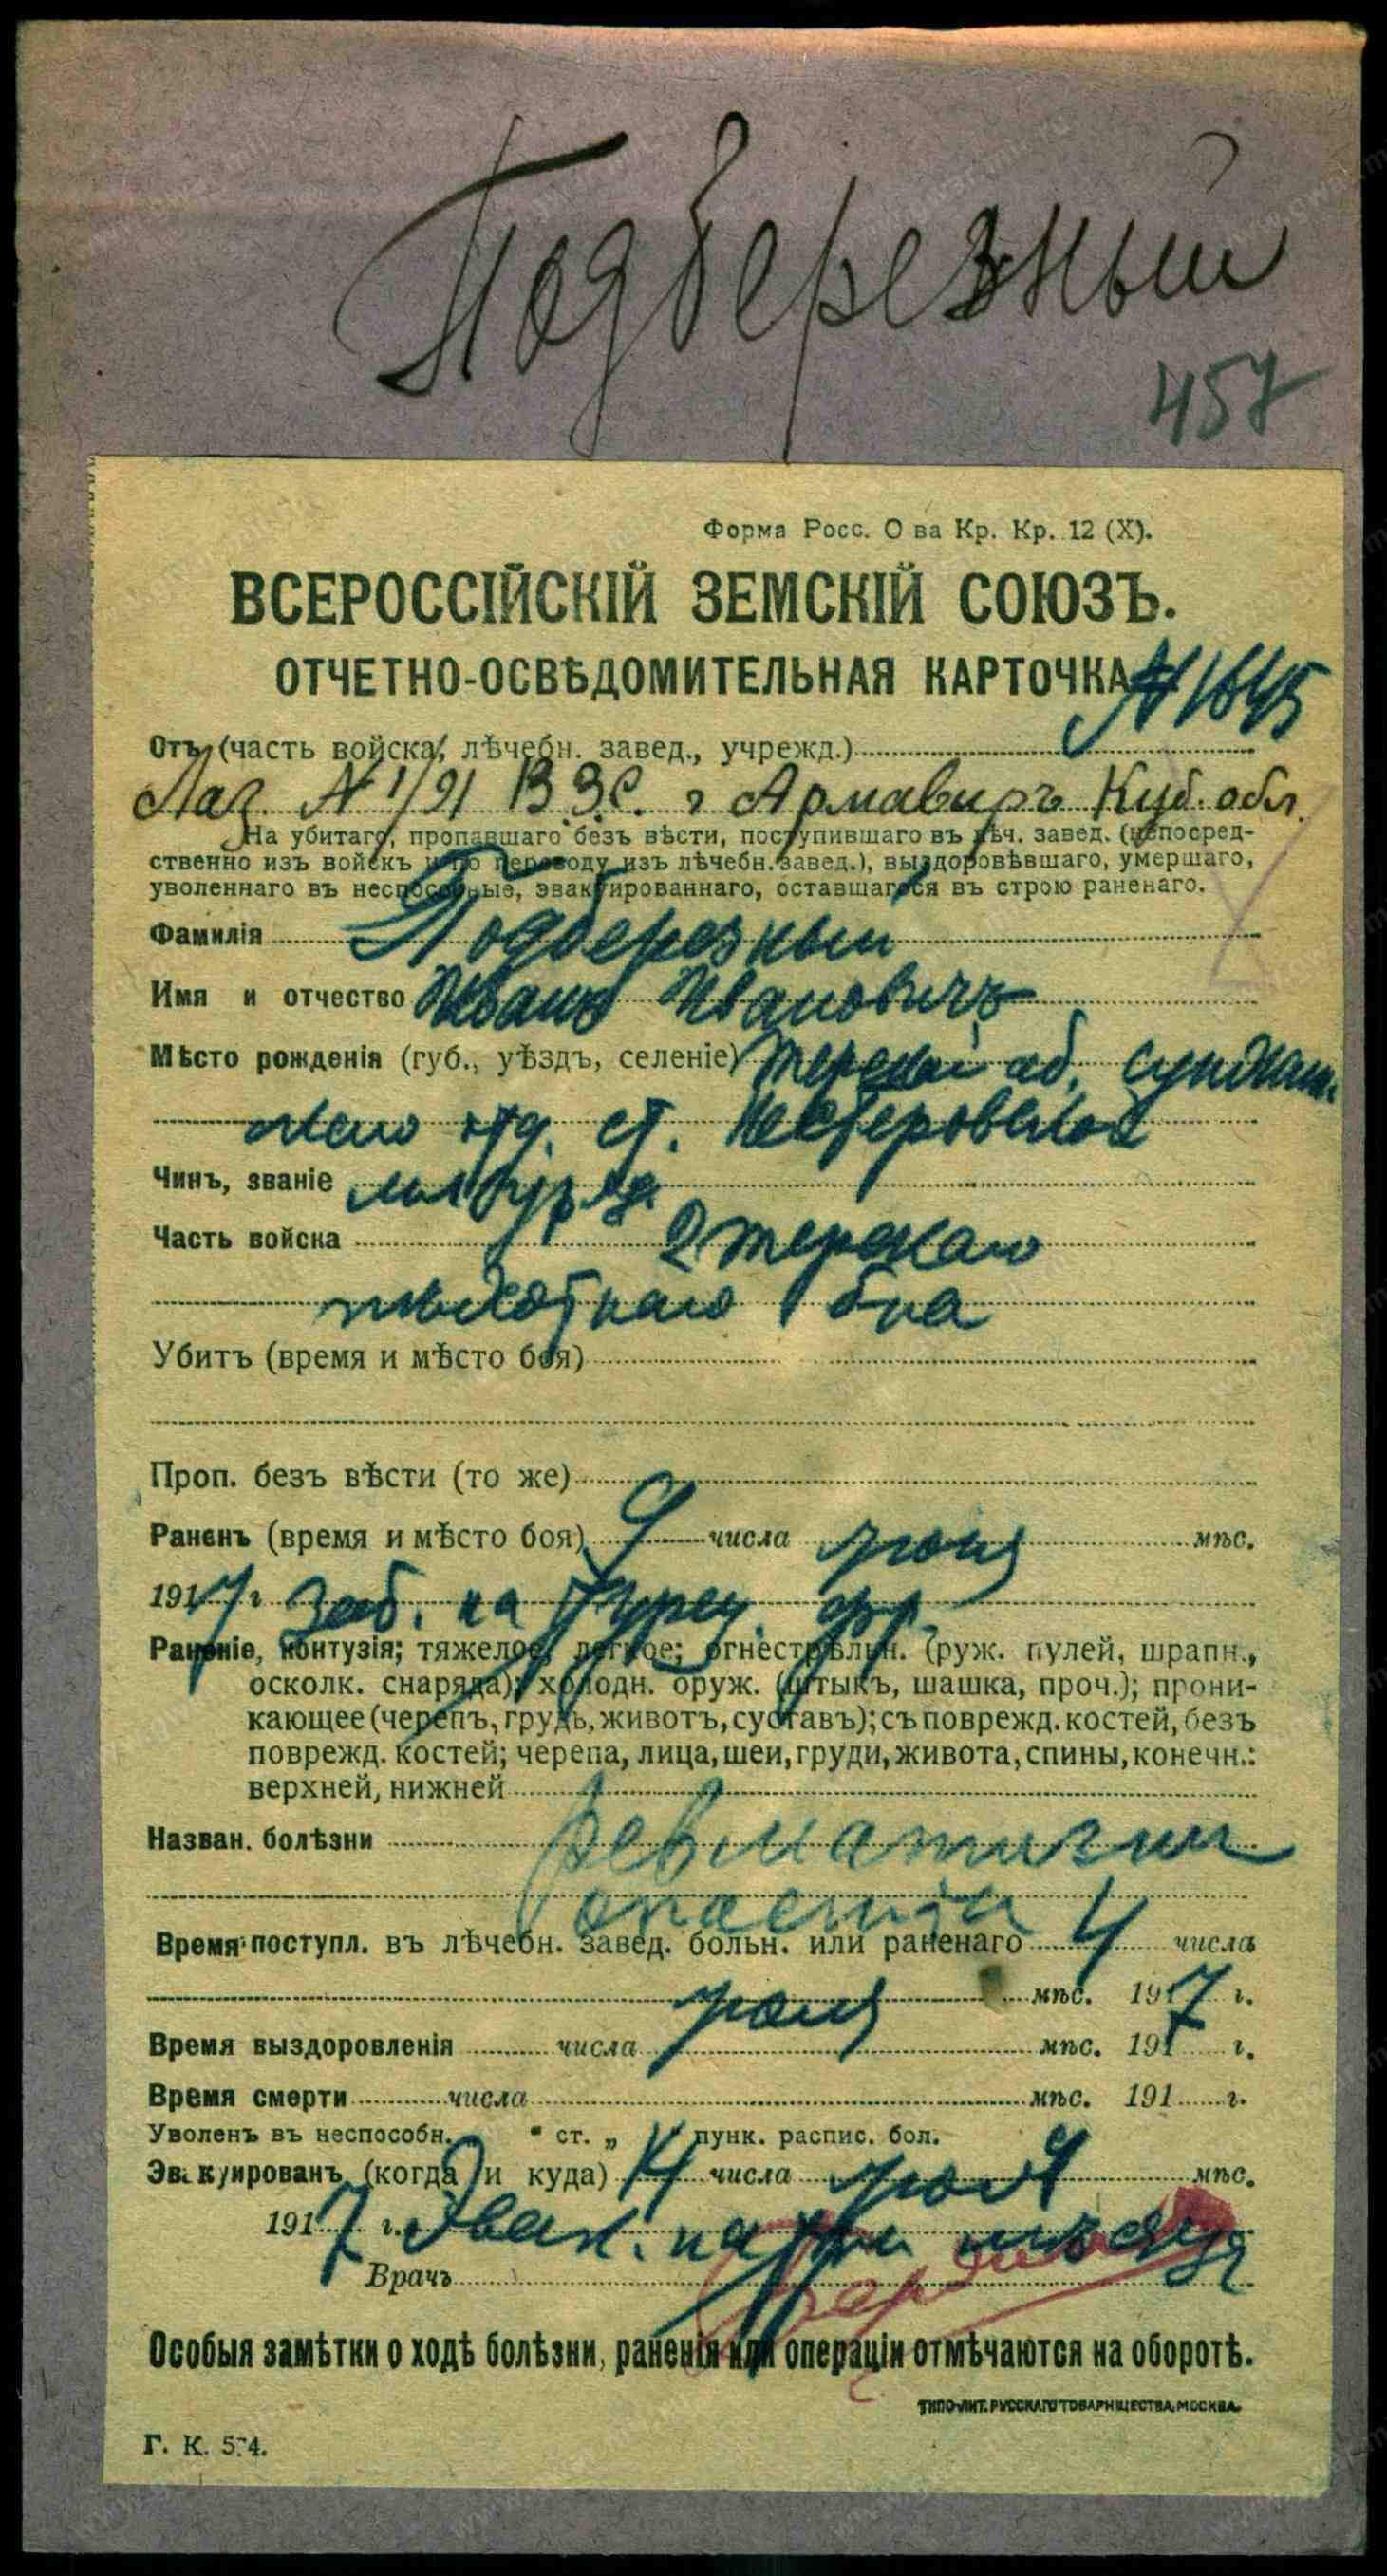 Подберезный
457
Форма Росс. О ва Кр. Кр. 12 (X).
ВСЕРОССІЙСКІЙ ЗЕМСКІЙ СОЮЗЪ.
ОТЧЕТНО-ОСВѢДОМИТЕЛЬНАЯ КАРТОЧКА №1645
Отъ (часть войска, лѣчебн. завед., учрежд.)
Лаз. № 1/91 В.З.С. г Армавиръ Куб. обл.
На убитаго, пропавшаго безъ вѣсти, поступившаго въ лѣч. завед. (непосред-
ственно изъ войскъ и по переводу изъ лѣчебн. завед.), выздоровѣвшаго, умершаго,
уволеннаго въ неспособные, эвакуированнаго, оставшагося въ строю раненаго.
Фамилія Подберезный
Имя и отчество Иванъ Ивановичъ
Мѣсто рожденія (губ., уѣздъ, селеніе) Терской об. Сунжен
скаго отд. ст. Нестеровской
Чинъ, званіе мл. уряд.
Часть войска 2 Терскаго
пѣхотнаго б-на
Убитъ (время и мѣсто боя)
Проп. безъ вѣсти (то же)
Раненъ (время и мѣсто боя) 9 числа мѣс.
1917 г. Заб. на Турец. фр.
Раненіе, контузія; тяжелое, легкое; огнестрѣльн. (руж. пулей, шрапн.,
осколк. снаряда); холодн. оруж. (штыкъ, шашка, проч.); прони-
кающее (черепъ, грудь, животъ, суставъ); съ поврежд. костей, безъ
поврежд. костей; черепа, лица, шеи, груди, живота, спины, конечн.:
верхней, нижней
Назван. болѣзни
Время поступл. въ лѣчебн. завед. больн. или раненаго 4 числа
мѣс. 1917 г.
Время выздоровленія числа мѣс. 191 г.
Время смерти числа мѣс. 191 г.
Уволенъ въ неспособн. " ст. „ пунк. распис. бол.
Эвакуированъ (когда и куда) 14 числа мѣс.
1917 г. Эвак. на три мѣсяца
Врачъ
Особыя замѣтки о ходѣ болѣзни, раненія или операціи отмѣчаются на оборотѣ.
ТИПО-ЛИТ. РУССКАГО ТОВАРИЩЕСТВА, МОСКВА.
Г. К. 574.